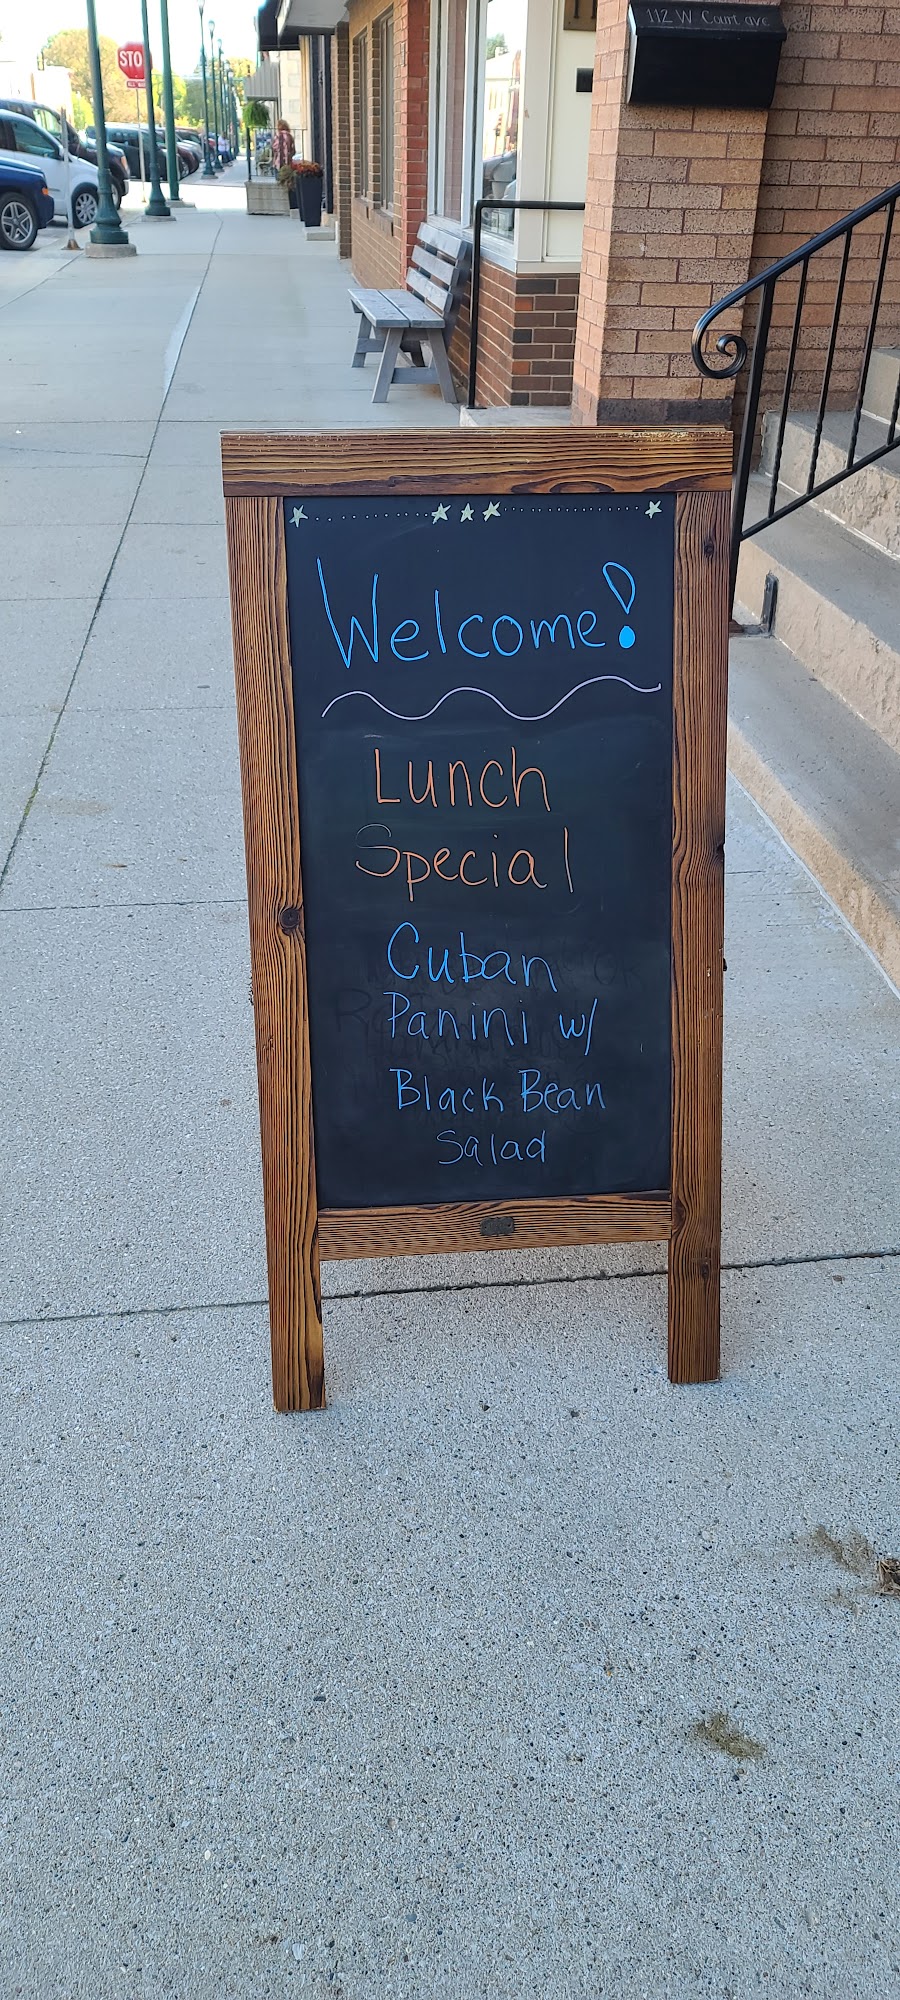 112 W. Court ave
STO
Welcome!
Lunch
Special
Cuban
Panini w/
Black Bean
Salad